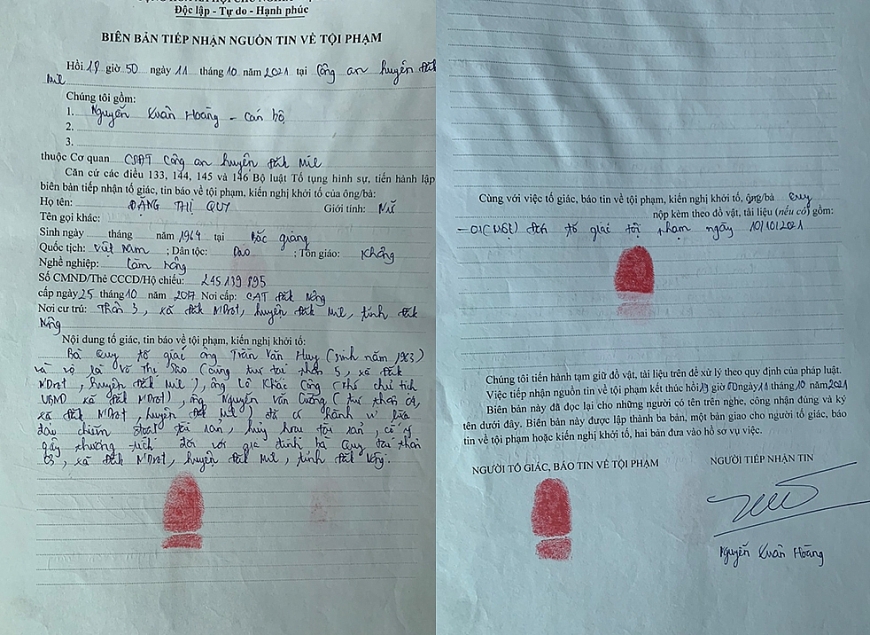 Độc lập - Tự do - Hạnh phúc
BIÊN BẢN TIẾP NHẬN NGUỒN TIN VỀ TỘI PHẠM
Hồi 18 giờ 50 ngày 11 tháng 10 năm 2021 tại Công an huyện Đắk
Mil
Chúng tôi gồm:
1. Nguyễn Xuân Hoàng - Cán bộ
2.
3.
thuộc Cơ quan CSĐT Công an huyện Đắk Mil
Căn cứ các điều 133, 144, 145 và 146 Bộ luật Tố tụng hình sự, tiến hành lập
biên bản tiếp nhận tố giác, tin báo về tội phạm, kiến nghị khởi tố của ông/bà:
Họ tên: ĐẶNG THỊ QUY Giới tính: Nữ
Tên gọi khác:
Sinh ngày tháng năm 1964 tại Bắc giang
Quốc tịch: Việt Nam ; Dân tộc: Dao ; Tôn giáo: Không
Nghề nghiệp: Làm nông
Số CMND/Thẻ CCCD/Hộ chiếu: 245139895
cấp ngày 25 tháng 10 năm 2017 Nơi cấp: CAT Đắk Nông
Nơi cư trú: Thôn 3, xã Đắk N'Drot, huyện Đắk Mil, tỉnh Đắk
Nông
Nội dung tố giác, tin báo về tội phạm, kiến nghị khởi tố:
Bà Quy tố giác ông Trần Văn Huy (sinh năm 1963)
và vợ là Võ Thị Thảo (cùng trú tại thôn 5, xã Đắk
N'Drot, huyện Đắk Mil), ông Lô Khắc Công (Phó chủ tịch
UBND xã Đắk N'Drot), ông Nguyễn Văn Cường (trú thôn
xã Đắk N'Drot, huyện Đắk Mil) đã có hành vi lừa
đảo chiếm đoạt tài sản, hủy hoại tài sản, cố ý
gây thương tích đối với gia đình bà Quy tại thôn
xã Đắk N'Drot, huyện Đắk Mil, tỉnh Đắk Nông.
Cùng với việc tố giác, báo tin về tội phạm, kiến nghị khởi tố, ông/bà Quy
nộp kèm theo đồ vật, tài liệu (nếu có) gồm:
- 01 (Một) đơn tố giác tội phạm ngày 10/10/2021
Chúng tôi tiến hành tạm giữ đồ vật, tài liệu trên để xử lý theo quy định của pháp luật.
Việc tiếp nhận nguồn tin về tội phạm kết thúc hồi 19 giờ 00 ngày 11 tháng 10 năm 2021
Biên bản này đã đọc lại cho những người có tên trên nghe, công nhận đúng và ký
tên dưới đây. Biên bản này được lập thành ba bản, một bản giao cho người tố giác, báo
tin về tội phạm hoặc kiến nghị khởi tố, hai bản đưa vào hồ sơ vụ việc.
NGƯỜI TỐ GIÁC, BÁO TIN VỀ TỘI PHẠM
NGƯỜI TIẾP NHẬN TIN
Nguyễn Xuân Hoàng